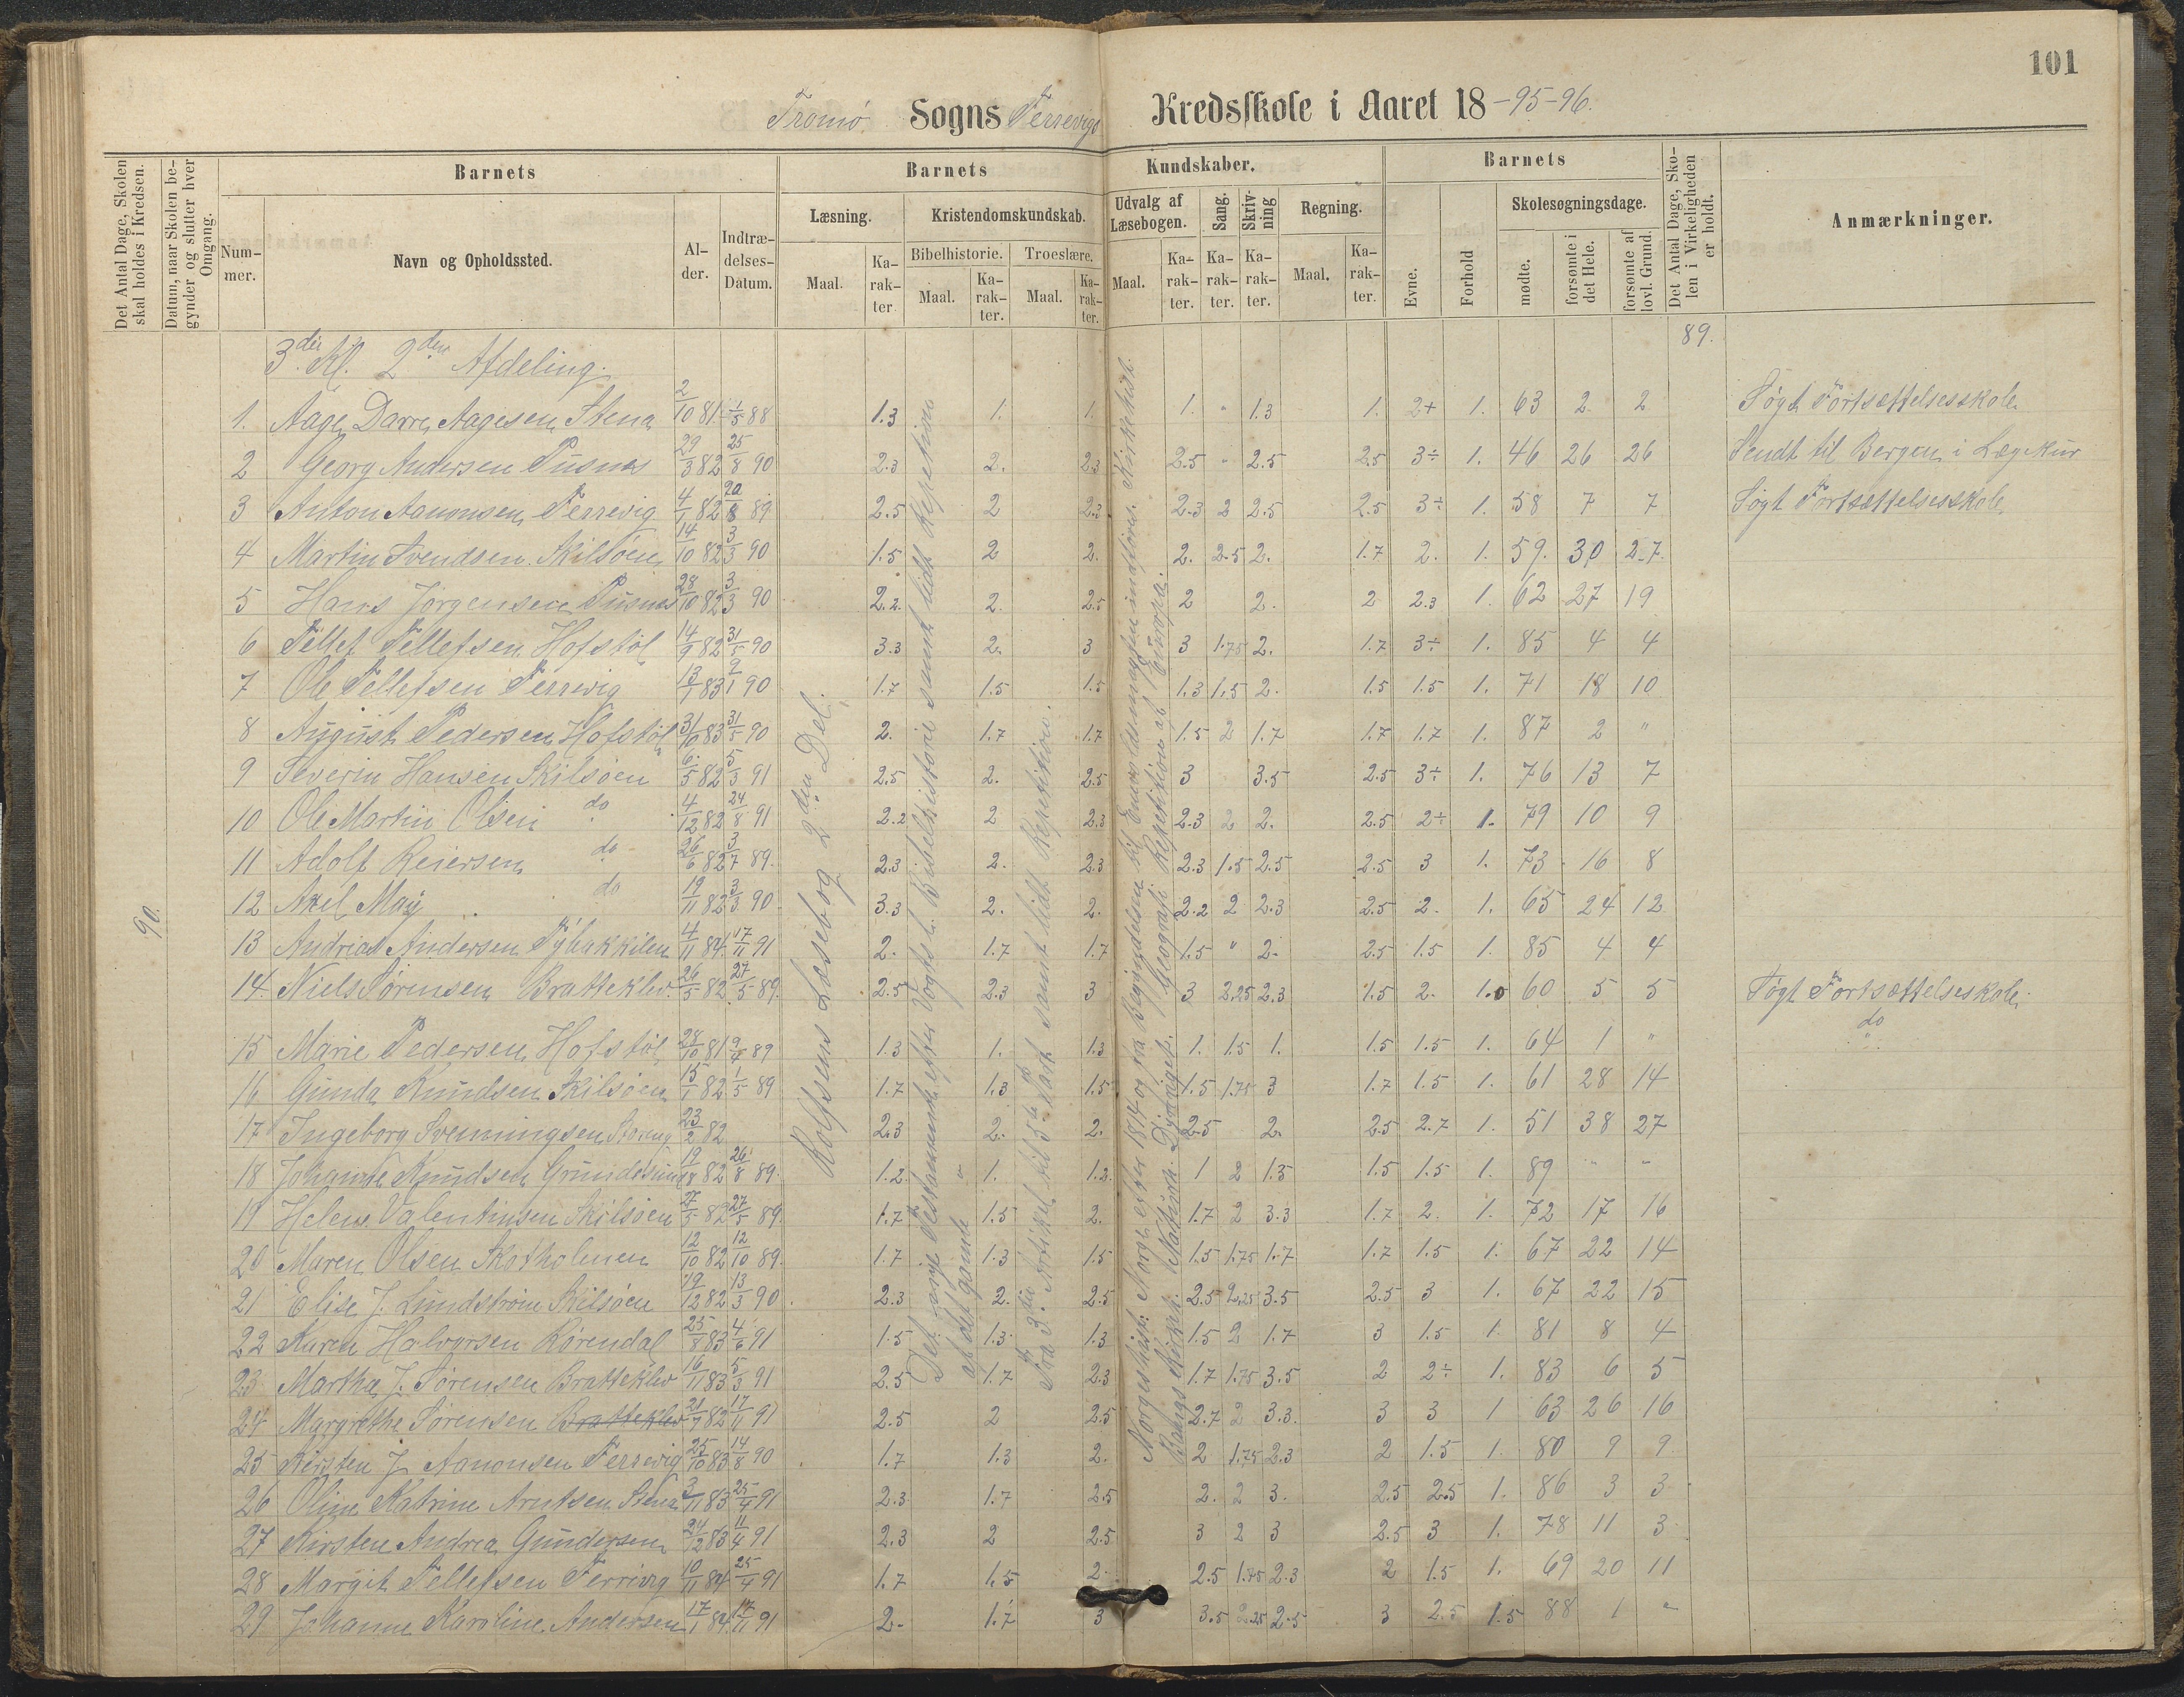 101
Tromø Sogns Terrevigs Kredsskole i Aaret 18-95-96.
Det Antal Dage, Skolen skal holdes i Kredsen.
Datum, naar Skolen begynder og slutter hver Omgang.
Barnets
Barnets
Kundskaber.
Barnets
Det Antal Dage, Skolen i Virkeligheden er holdt.
Anmærkninger.
Nummer.
Navn og Opholdssted.
Alder.
Indtrædelses-Datum.
Læsning.
Kristendomskundskab.
Udvalg af Læsebogen.
Sang.
Skrivning
Regning.
Evne.
Forhold
Skolesøgningsdage.
Bibelhistorie.
Troeslære.
Maal.
Karakter
Maal.
Karakter.
Maal.
Karakter.
Maal.
Karakter.
Karakter.
Karakter.
Maal.
Karakter.
mødte.
forsømte i det Hele.
forsømte af lovl. Grund.
90.
89.
3die Kl. 2den Afdeling.
1. Aage Darre Aagesen Stena 2/10 81 1/5 88 1.3 1. 1. 1. " 1.3 1. 2+ 1. 63 2 2 Søgt Fortsættelsesskole
2 Georg Andersen Pusnes 29/3 82 25/8 90 2.3 2. 2.3 2.5 " 2.5 2.5 3÷ 1. 46 26 26 Sendt til Bergen i Lægekur
3 Anton Aanonsen Terrevig 4/1 82 20/8 89 2.5 2 2.3 2.3 2 2.5 2.5 3÷ 1. 58 7 7 Søgt Fortsættelsesskole
4 Martin Svendsen Skilsøen 14/10 82 3/3 90 1.5 2 2. 2. 2.5 2. 1.7 2. 1. 59. 30 27.
5 Hans Jørgensen Pusnes 28/10 82 3/3 90 2.2. 2. 2.5 2 2. 2 2.3 1. 62 27 19
6 Tellef Tellefsen Hofstøl 14/9 82 31/5 90 3.3 2. 3 3 1.75 2. 1.7 3÷ 1. 85 4 4
7 Ole Tellefsen Terrevig 13/1 83 2/1 90 1.7 1.5 1.5 1.3 1.5 2. 1.5 1.5 1. 71 18 10
8 August Pedersen Hofstøl 31/10 83 31/5 90 2. 1.7 1.7 1.5 2 1.7 1.7 1.7 1. 87 2 "
9 Severin Hansen Skilsøen 6/5 82 5/3 91 2.5 2. 2.5 3 3.5 2.5 3÷ 1. 76 13 7
10 Ole Martin Olsen do 4/12 82 24/8 91 2.2 2 2.3 2.3 2 2. 2.5 2÷ 1. 79 10 9
11 Adolf Reiersen do 26/6 82 3/7 89. 2.3 2. 2.3 2.3 1.5 2.5 2.5 3 1. 73 16 8
12 Axel May do 19/11 82 3/3 90 3.3 2. 2. 2.2 2 2.3 2.5 2. 1. 65 24 12
13 Andreas Andersen Tybakkilen 4/11 84 17/11 91 2. 1.7 1.7 1.5 " 2. 2.5 1.5 1. 85 4 4
14. Niels Sørensen Bratteklev. 26/5 82 27/5 89. 2.5 2.3 3 3 2.25 2.3 1.5 2. 1.0 60 5 5 Søgt Fortsættelseskole
15 Marie Pedersen Hofstøl 28/10 81 9/7 89 1.3 1. 1.3 1. 1.5 1. 1.5 1.5 1. 64 1 " do
16 Gunda Knudsen Skilsøen 15/1 82 1/5 89 1.7 1.3 1.5 1.5 1.75 3 1.7 1.5 1. 61 28 14
17 Ingeborg Svenningsen 23/2 82 2.3 2. 2. 2.5 2. 2.5 2.7 1. 51 38 27
18 Johanne Knudsen Grundesund 19/8 82 26/8 89. 1.2. 1. 1.2. 1 2 1.3 1.5 1.5 1. 89 " "
19 Helene Valentinsen Skilsøen 27/5 82 27/5 89. 1.7 1.5 2. 1.7 2 3.3 1.7 2. 1. 72 17 16
20 Maren Olsen Skotholmen 12/10 82 12/10 89. 1.7 1.3 1.5 1.5 1.75 1.7 1.7 1.5 1. 67 22 14
21 Elise J. Lundstrøm Skilsøen 19/12 82 13/3 90 2.3 2. 2.5 2.5 2.25 3.5 2.5 3 1. 67 22 15
22 Karen Halvorsen Rørendal 25/8 83 4/6 91 1.5 1.3 1.3 1.5 2 1.7 3 1.5 1. 81 8 4
23 Marthe J. Sørensen Bratteklev 16/11 83 5/3 91 2.5 1.7 2.3 1.7 1.75 3.5 2 2÷ 1. 83 6 5
24 Margrethe Sørensen Bratteklev 21/7 82 17/11 91 2.5 2 2.5 2.7 2 3.3. 3 3 1 63 26 16
25 Kirsten J Aanonsen Terrevig 25/10 83 14/8 90 1.7 1.3 2. 2 1.75 2.3 2 1.5 1. 80 9 9
26 Oline Katrine Arntsen Stena 3/11 83 25/4 91 2.3 1.7 2.5 2. 2 3. 2.5 2.5 1. 86 3 3
27 Kirsten Andrea Gundersen 24/12 83 11/4 91 2.3 2 2.5 3 2 3 2.5 3 1. 78 11 3
28 Margit Tellefsen Terrivig 10/11 84 25/4 91 1.7 1.5 2. 2.5 1.75 2.3 2 1.5 1. 69 20 11
29 Johanne Karoline Andersen 17/1 84 17/11 91 2. 1.7 3 3.5 2.25 2.5 3 2.5 1.5 88 1 "
Rolfsens Læsebog 2den Del.
Det nye Testamente efter Vogts l. Bibelhistorie samt lidt Repetition
af det gamle
Fra 3die Artikel til 5te Part samt lidt Repetition.
Norgeshist. Norge efter 1814 og fra Begyndelsen til Enevoldsmagten indføres. Kirkehist.
Bangs Kirkeh. Naturh. Dyreriget. Geografi Repetition af Europa.